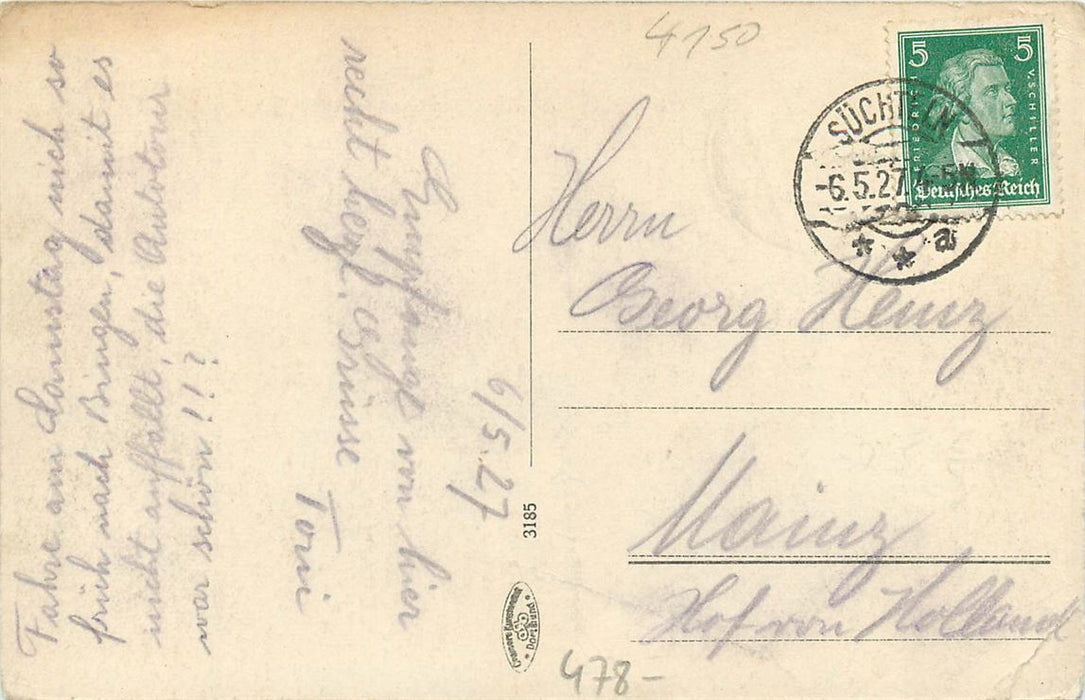 4150
5 5
FRIEDRICH V. SCHILLER
Deutsches Reich
SÜCHTELN
-6.5.27.
* * a
6/5.27
Empfangt von hier
recht herzl. Grüsse
Toni
Fahre am Samstag nich so
früh nach Bingen, damit es
nicht auffällt, die Autotour
war schön!!?
Herrn
Georg Heinz
Mainz
Hof von Holland
3185
Dortmund
478-